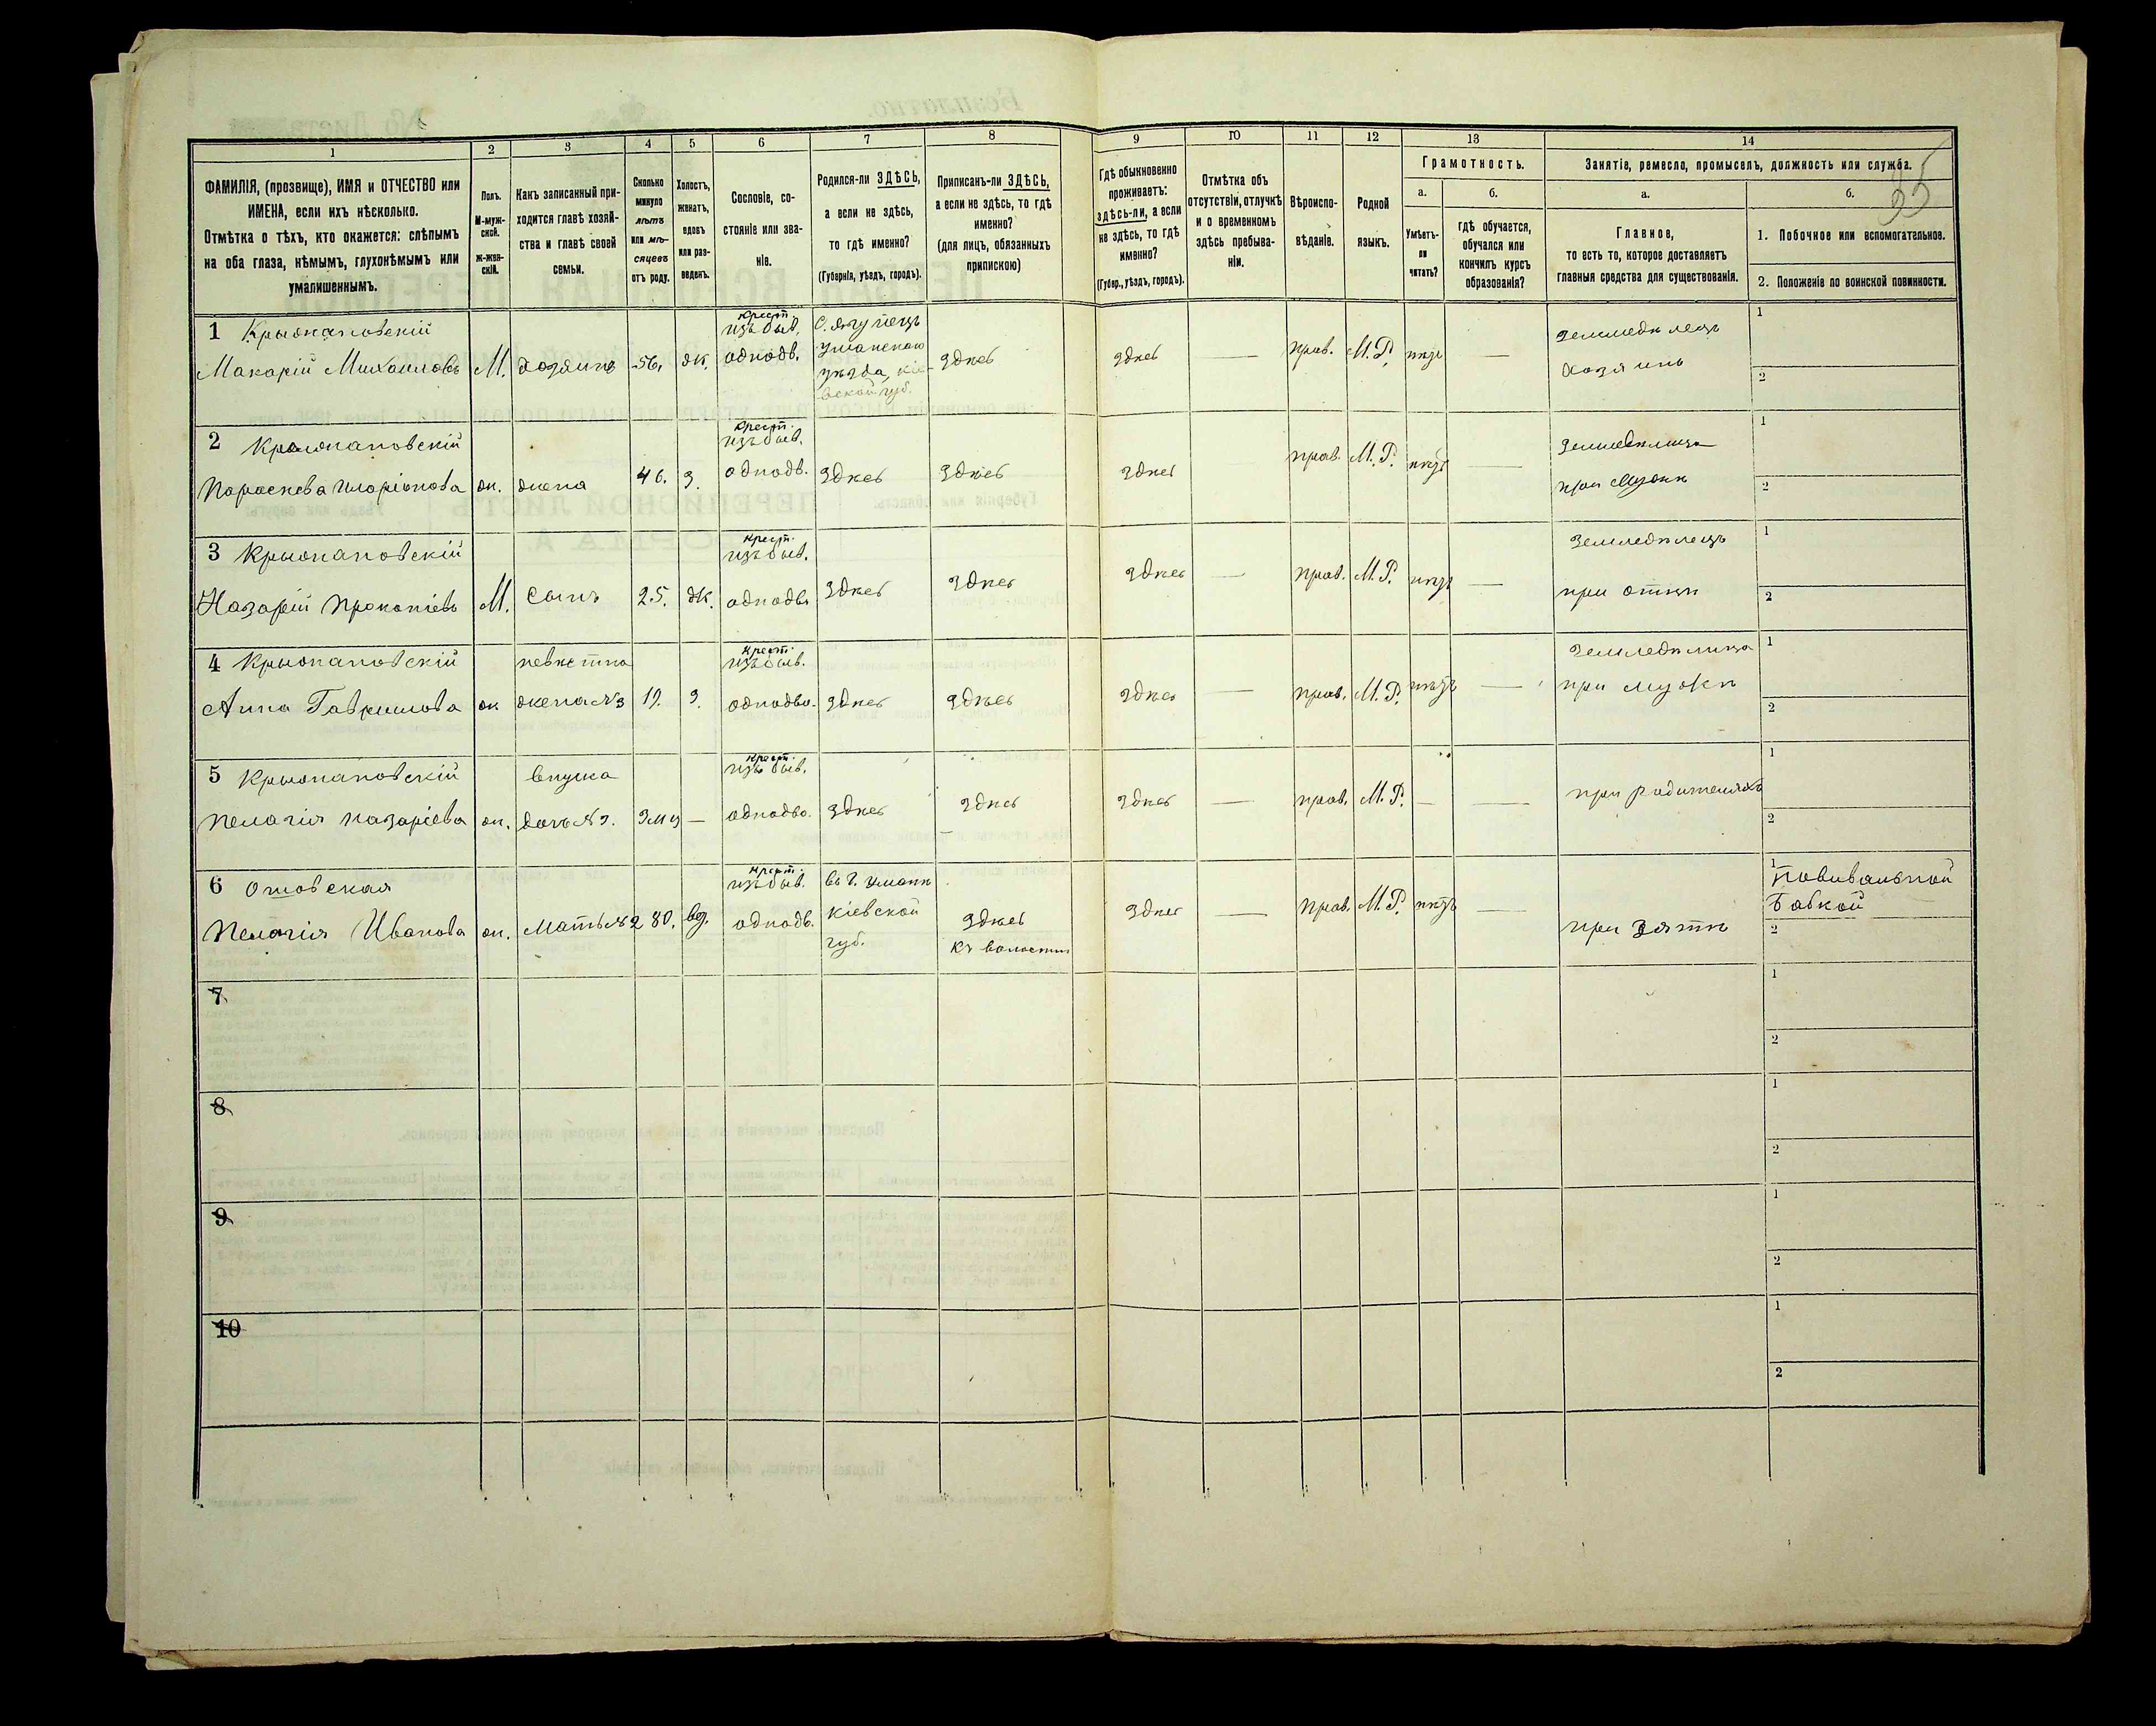 35
1
2
3
4
5
6
7
8
9
10
11
12
13
14
ФАМИЛІЯ, (прозвище), ИМЯ и ОТЧЕСТВО или
ИМЕНА, если ихъ нѣсколько.
Отмѣтка о тѣхъ, кто окажется: слѣпымъ
на оба глаза, нѣмымъ, глухонѣмымъ или
умалишеннымъ.
Полъ.
М-муж-
ской.
ж-жен-
скій.
Какъ записанный при-
ходится главѣ хозяй-
ства и главѣ своей
семьи.
Сколько
минуло
лѣтъ
или мѣ-
сяцевъ
отъ роду.
Холостъ,
женатъ,
вдовъ
или раз-
веденъ.
Сословіе, со-
стояніе или зва-
ніе.
Родился-ли ЗДѢСЬ,
а если не здѣсь,
то гдѣ именно?
(Губернія, уѣздъ, городъ).
Приписанъ-ли ЗДѢСЬ,
а если не здѣсь, то гдѣ
именно?
(для лицъ, обязанныхъ
припискою)
Гдѣ обыкновенно
проживаетъ:
здѣсь-ли, а если
не здѣсь, то гдѣ
именно?
(Губер., уѣздъ, городъ).
Отмѣтка объ
отсутствіи, отлучкѣ
и о временномъ
здѣсь пребыва-
ніи.
Вѣроиспо-
вѣданіе.
Родной
языкъ.
Грамотность.
а.
Умѣетъ-
ли
читать?
б.
гдѣ обучается,
обучался или
кончилъ курсъ
образованія?
Занятіе, ремесло, промыселъ, должность или служба.
а.
Главное,
то есть то, которое доставляетъ
главныя средства для существованія.
б.
1. Побочное или вспомогательное.
2. Положеніе по воинской повинности.
1 Крыжановскій
Макарій Михаиловъ
М.
хозяинъ
56.
Ж.
крест.
изъ быв.
однодв.
Уманскаго
уѣзда, Кіе-
вской губ.
здѣсь
здѣсь
—
прав.
М.Р.
нѣтъ
—
Земледѣлецъ
хозяинъ
1
2
2 Крыжановскій
Параскева Иларіонова
ж.
жена
46.
З.
крест.
изъ быв.
однодв.
здѣсь
здѣсь
здѣсь
прав.
М.Р.
нѣтъ
—
Земледѣлица
при мужѣ
1
2
3 Крыжановскій
Назарій Прокопіевъ
М.
Сынъ
25.
Ж.
крест.
изъ быв.
однодв.
здѣсь
здѣсь
здѣсь
—
прав.
М.Р.
нѣтъ
—
Земледѣлецъ
при отцѣ
1
2
4 Крыжановскій
Анна Гаврилова
ж
невѣстка
жена №3
19.
З.
крест.
изъ быв.
однодво.
здѣсь
здѣсь
здѣсь
—
прав.
М.Р.
нѣтъ
—
Земледѣлица
при мужѣ
1
2
5 Крыжановскій
Пелагія Назаріева
ж.
внучка
дочь №3.
—
крест.
изъ быв.
однодво.
здѣсь
здѣсь
здѣсь
—
прав.
М.Р.
—
—
при родителяхъ
1
2
6
Пелагія Иванова
ж.
мать №2
80.
вд.
крест.
изъ быв.
однодв.
въ г. Умани
Кіевской
губ.
здѣсь
къ волости
здѣсь
—
прав.
М.Р.
нѣтъ
—
при зятѣ
1
Повивальной
бабкой
2
7
1
2
8
1
2
9
1
2
10
1
2